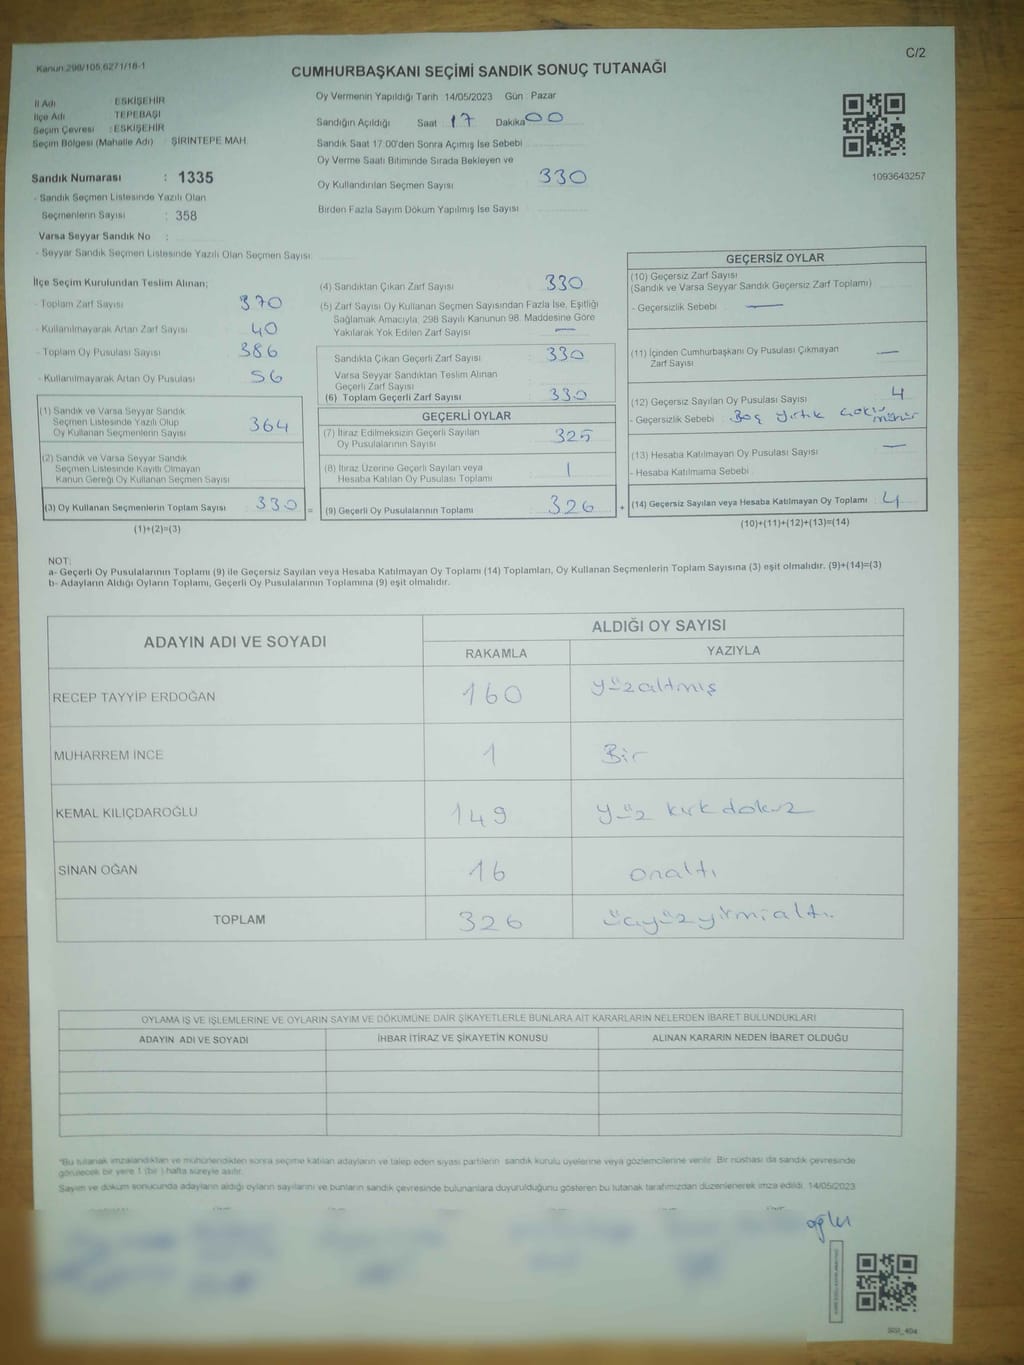 Kanun:298/105,6271/18-1
C/2
CUMHURBAŞKANI SEÇİMİ SANDIK SONUÇ TUTANAĞI
İl Adı ESKİŞEHİR
İlçe Adı TEPEBAŞI
Seçim Çevresi : ESKİŞEHİR
Seçim Bölgesi (Mahalle Adı) ŞİRİNTEPE MAH.
Sandık Numarası : 1335
- Sandık Seçmen Listesinde Yazılı Olan
Seçmenlerin Sayısı : 358
Varsa Seyyar Sandık No :
- Seyyar Sandık Seçmen Listesinde Yazılı Olan Seçmen Sayısı:
Oy Vermenin Yapıldığı Tarih 14/05/2023 Gün Pazar
Sandığın Açıldığı Saat 17 Dakika 00
Sandık Saat 17:00'den Sonra Açımış İse Sebebi
Oy Verme Saati Bitiminde Sırada Bekleyen ve
Oy Kullandırılan Seçmen Sayısı 330
Birden Fazla Sayım Döküm Yapılmış İse Sayısı
1093643257
İlçe Seçim Kurulundan Teslim Alınan;
- Toplam Zarf Sayısı 370
- Kullanılmayarak Artan Zarf Sayısı 40
- Toplam Oy Pusulası Sayısı 386
- Kullanılmayarak Artan Oy Pusulası 56
(1) Sandık ve Varsa Seyyar Sandık
Seçmen Listesinde Yazılı Olup
Oy Kullanan Seçmenlerin Sayısı 364
(2) Sandık ve Varsa Seyyar Sandık
Seçmen Listesinde Kayıtlı Olmayan
Kanun Gereği Oy Kullanan Seçmen Sayısı
(3) Oy Kullanan Seçmenlerin Toplam Sayısı 330 =
(1)+(2)=(3)
(4) Sandıktan Çıkan Zarf Sayısı 330
(5) Zarf Sayısı Oy Kullanan Seçmen Sayısından Fazla İse, Eşitliği
Sağlamak Amacıyla, 298 Sayılı Kanunun 98. Maddesine Göre
Yakılarak Yok Edilen Zarf Sayısı —
Sandıkta Çıkan Geçerli Zarf Sayısı 330
Varsa Seyyar Sandıktan Teslim Alınan
Geçerli Zarf Sayısı
(6) Toplam Geçerli Zarf Sayısı 330
GEÇERLİ OYLAR
(7) İtiraz Edilmeksizin Geçerli Sayılan
Oy Pusulalarının Sayısı 325
(8) İtiraz Üzerine Geçerli Sayılan veya
Hesaba Katılan Oy Pusulası Toplamı 1
(9) Geçerli Oy Pusulalarının Toplamı 326 +
GEÇERSİZ OYLAR
(10) Geçersiz Zarf Sayısı
(Sandık ve Varsa Seyyar Sandık Geçersiz Zarf Toplamı)
- Geçersizlik Sebebi —
(11) İçinden Cumhurbaşkanı Oy Pusulası Çıkmayan
Zarf Sayısı —
(12) Geçersiz Sayılan Oy Pusulası Sayısı 4
- Geçersizlik Sebebi : Boş yırtık çoklu mühür
(13) Hesaba Katılmayan Oy Pusulası Sayısı —
- Hesaba Katılmama Sebebi
(14) Geçersiz Sayılan veya Hesaba Katılmayan Oy Toplamı 4
(10)+(11)+(12)+(13)=(14)
NOT:
a- Geçerli Oy Pusulalarının Toplamı (9) ile Geçersiz Sayılan veya Hesaba Katılmayan Oy Toplamı (14) Toplamları, Oy Kullanan Seçmenlerin Toplam Sayısına (3) eşit olmalıdır. (9)+(14)=(3)
b- Adayların Aldığı Oyların Toplamı, Geçerli Oy Pusulalarının Toplamına (9) eşit olmalıdır.
ADAYIN ADI VE SOYADI ALDIĞI OY SAYISI
RAKAMLA YAZIYLA
RECEP TAYYİP ERDOĞAN 160 yüzaltmış
MUHARREM İNCE 1 Bir
KEMAL KILIÇDAROĞLU 149 yüz kırk dokuz
SİNAN OĞAN 16 onaltı
TOPLAM 326 üçyüzyirmialtı
OYLAMA İŞ VE İŞLEMLERİNE VE OYLARIN SAYIM VE DÖKÜMÜNE DAİR ŞİKAYETLERLE BUNLARA AİT KARARLARIN NELERDEN İBARET BULUNDUKLARI
ADAYIN ADI VE SOYADI İHBAR İTİRAZ VE ŞİKAYETİN KONUSU ALINAN KARARIN NEDEN İBARET OLDUĞU
"Bu tutanak imzalandıktan ve mühürlendikten sonra seçime katılan adayların ve talep eden siyasi partilerin sandık kurulu üyelerine veya gözlemcilerine verilir. Bir nüshası da sandık çevresinde
görülecek bir yere 1 (bir ) hafta süreyle asılır.
Sayım ve döküm sonucunda adayların aldığı oyların sayılarını ve bunların sandık çevresinde bulunanlara duyurulduğunu gösteren bu tutanak tarafımızdan düzenlenerek imza edildi. 14/05/2023